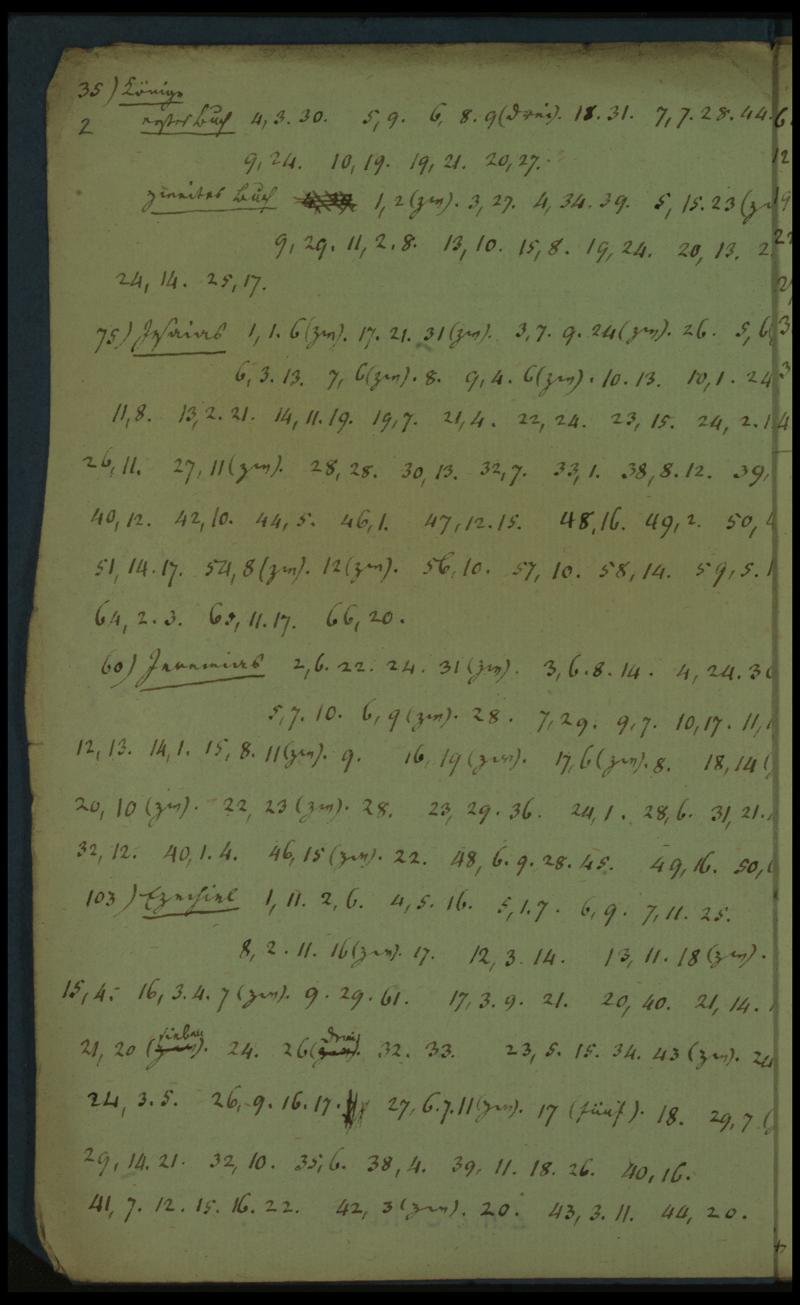 35) Könige
2 erstes Buch 4, 3. 30. 5, 9. 6, 8. 9 (drei). 18. 31. 7, 7. 28. 44.
9, 24. 10, 19. 19, 21. 20, 27.
zweites Buch 1, 2 (zw). 3, 27. 4, 34. 39. 5, 15. 23
9, 29. 11, 2. 8. 13, 10. 15, 8. 19, 24. 20, 13. 2
24, 14. 25, 17.
75) Jesaias 1, 1. 6 (zw). 17. 21. 31 (zw). 3, 7. 9. 24 (zw). 26. 5, 6
6, 3. 13. 7, 6 (zw). 8. 9, 4. 6 (zw). 10. 13. 10, 1. 24
11, 8. 13, 2. 21. 14, 11. 19. 19, 7. 21, 4. 22, 24. 23, 15. 24, 2. 1
26, 11. 27, 11 (zw). 28, 28. 30, 13. 32, 7. 33, 1. 38, 8. 12. 39,
40, 12. 42, 10. 44, 5. 46, 1. 47, 12. 15. 48, 16. 49, 2. 50,
51, 14. 17. 54, 8 (zw). 12 (zw). 56, 10. 57, 10. 58, 14. 59, 5. 1
64, 2. 3. 65, 11. 17. 66, 20.
60) Jeremias 2, 6. 22. 24. 31 (zw). 3, 6. 8. 14. 4, 24. 30
5, 7. 10. 6, 9 (zw). 28. 7, 29. 9, 7. 10, 17. 11,
12, 13. 14, 1. 15, 8. 11 (zw). 9. 16, 19 (zw). 17, 6 (zw). 8. 18, 14 (
20, 10 (zw). 22, 23 (zw). 28. 23, 29. 36. 24, 1. 28, 6. 31, 21.
32, 12. 40, 1. 4. 46, 15 (zw). 22. 48, 6. 9. 28. 45. 49, 16. 50,
103) Ezechiel 1, 11. 2, 6. 4, 5. 16. 5, 1. 7. 6, 9. 7, 11. 25.
8, 2. 11. 16 (zw). 17. 12, 3. 14. 13, 11. 18 (zw).
15, 4. 16, 3. 4. 7 (zw). 9. 29. 61. 17, 3. 9. 21. 20, 40. 21, 14.
21, 20 (sieben). 24. 26 (drei). 32. 33. 23, 5. 15. 34. 43 (zw). 24
24, 3. 5. 26, 9. 16. 17. 27, 6. 7. 11 (zw). 17 (fünf). 18. 29, 7 (
29, 14. 21. 32, 10. 35, 6. 38, 4. 39, 11. 18. 26. 40, 16.
41, 7. 12. 15. 16. 22. 42, 3 (zw). 20. 43, 3. 11. 44, 20.